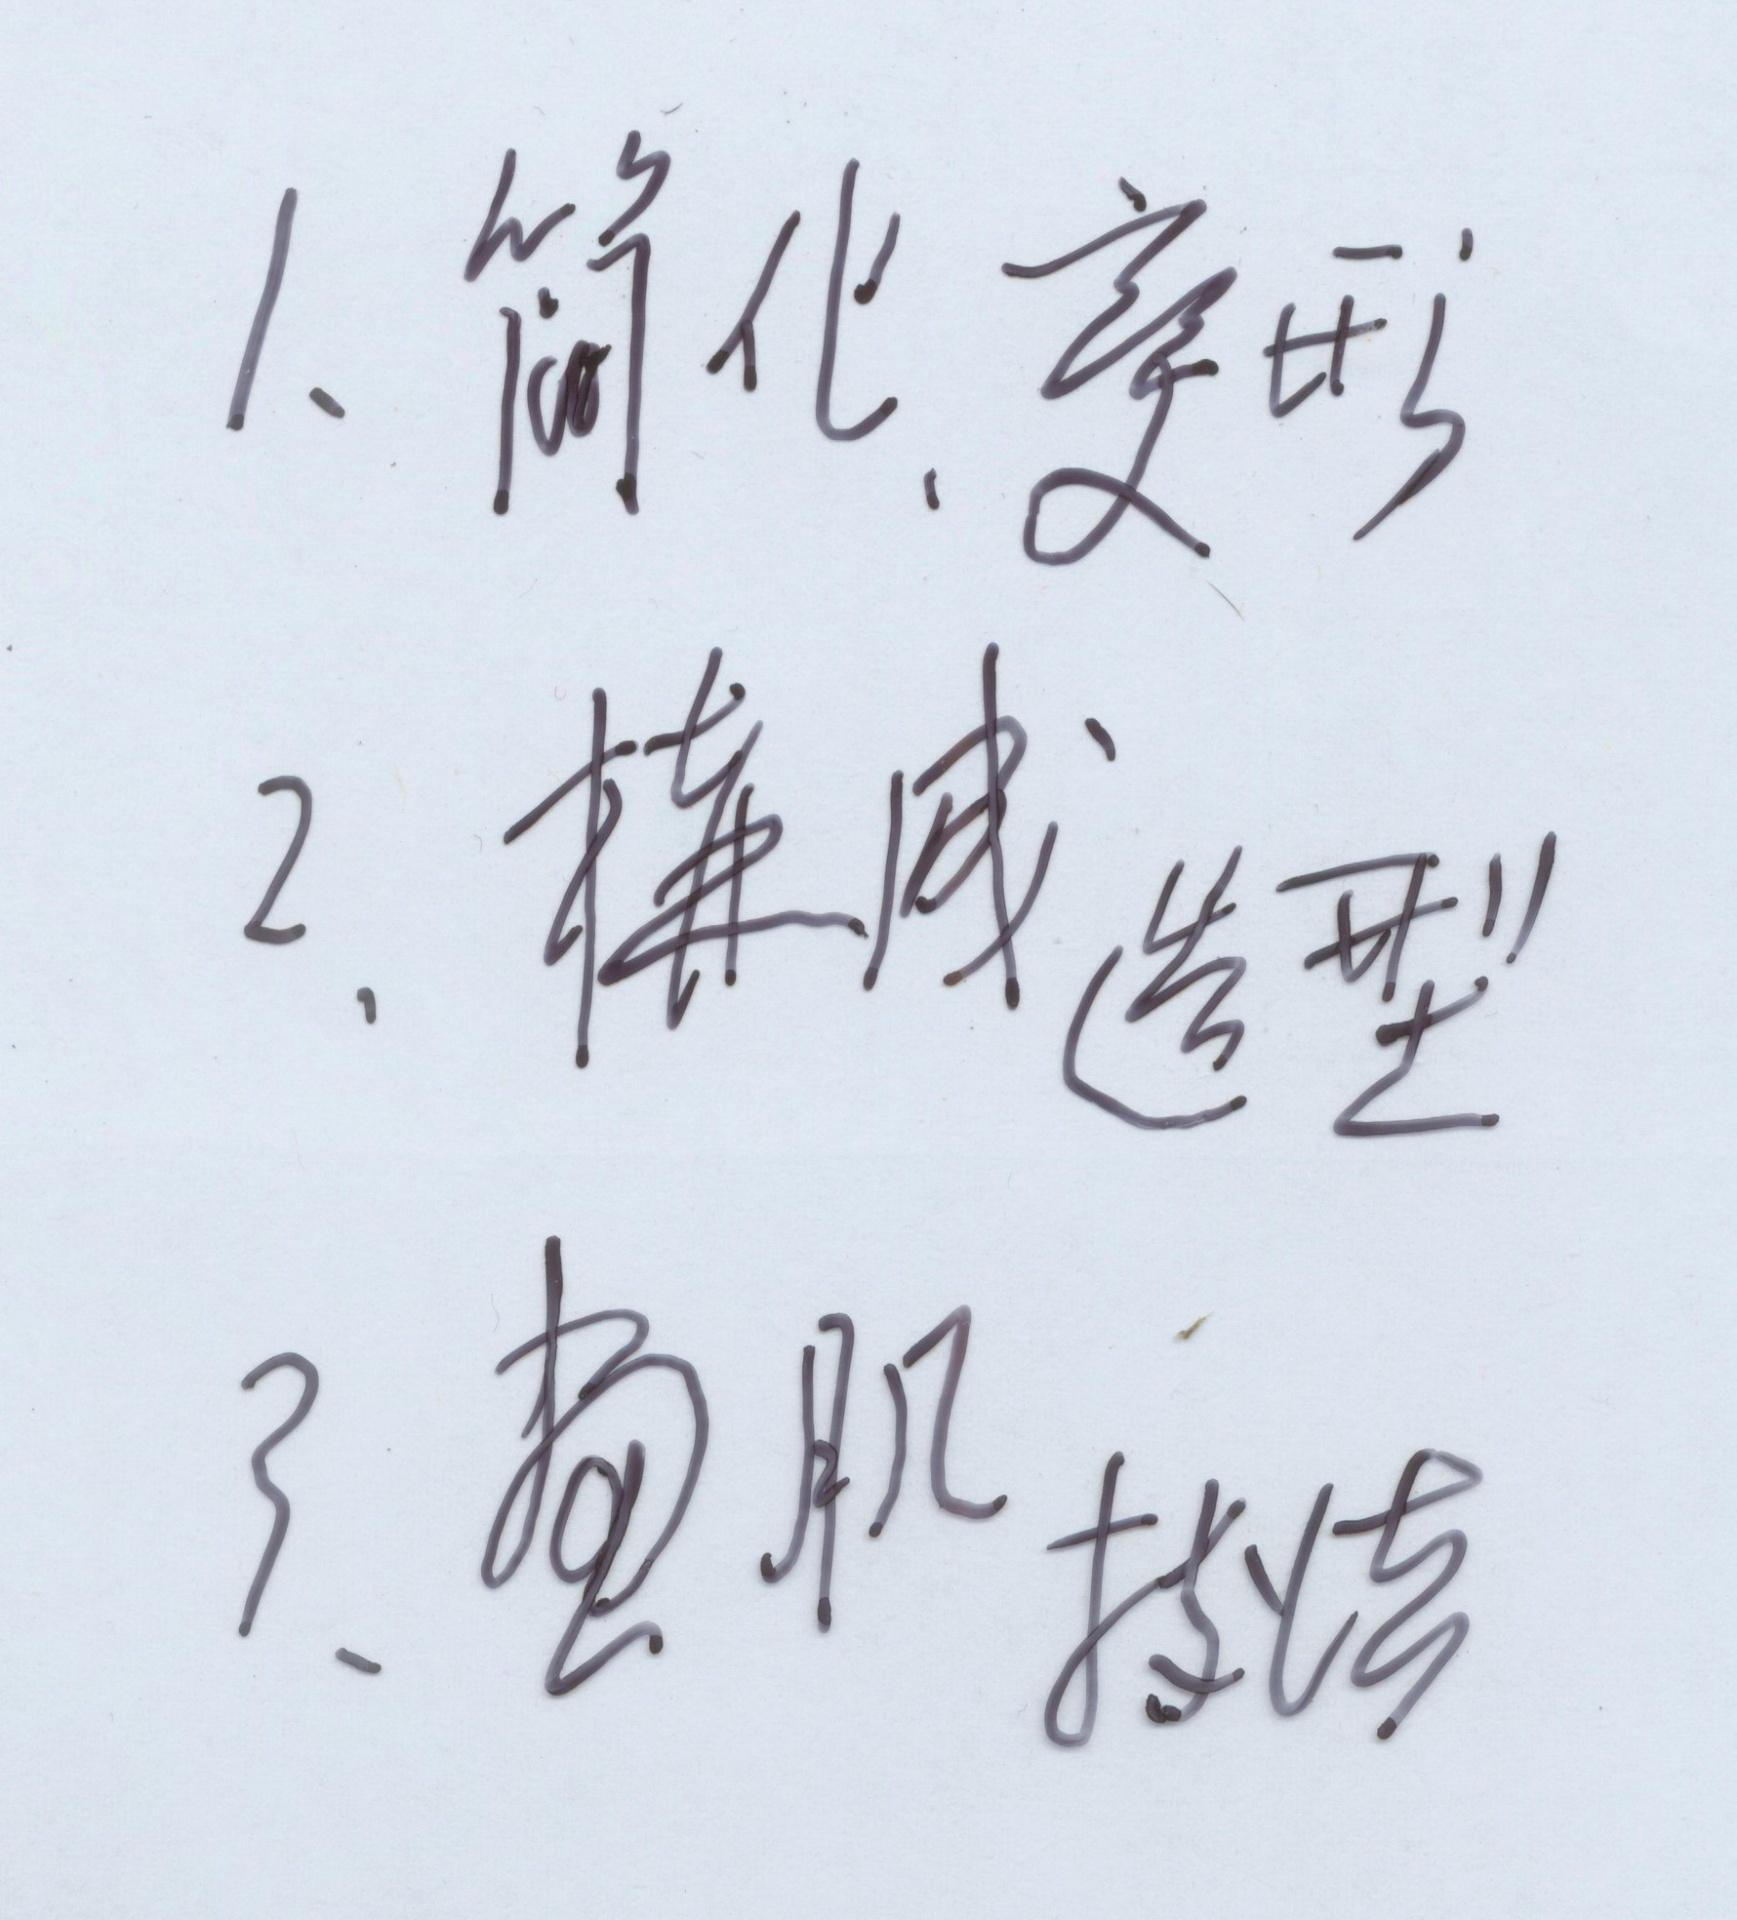 1、簡化、變形
2、構成造型
3、畫肌技法